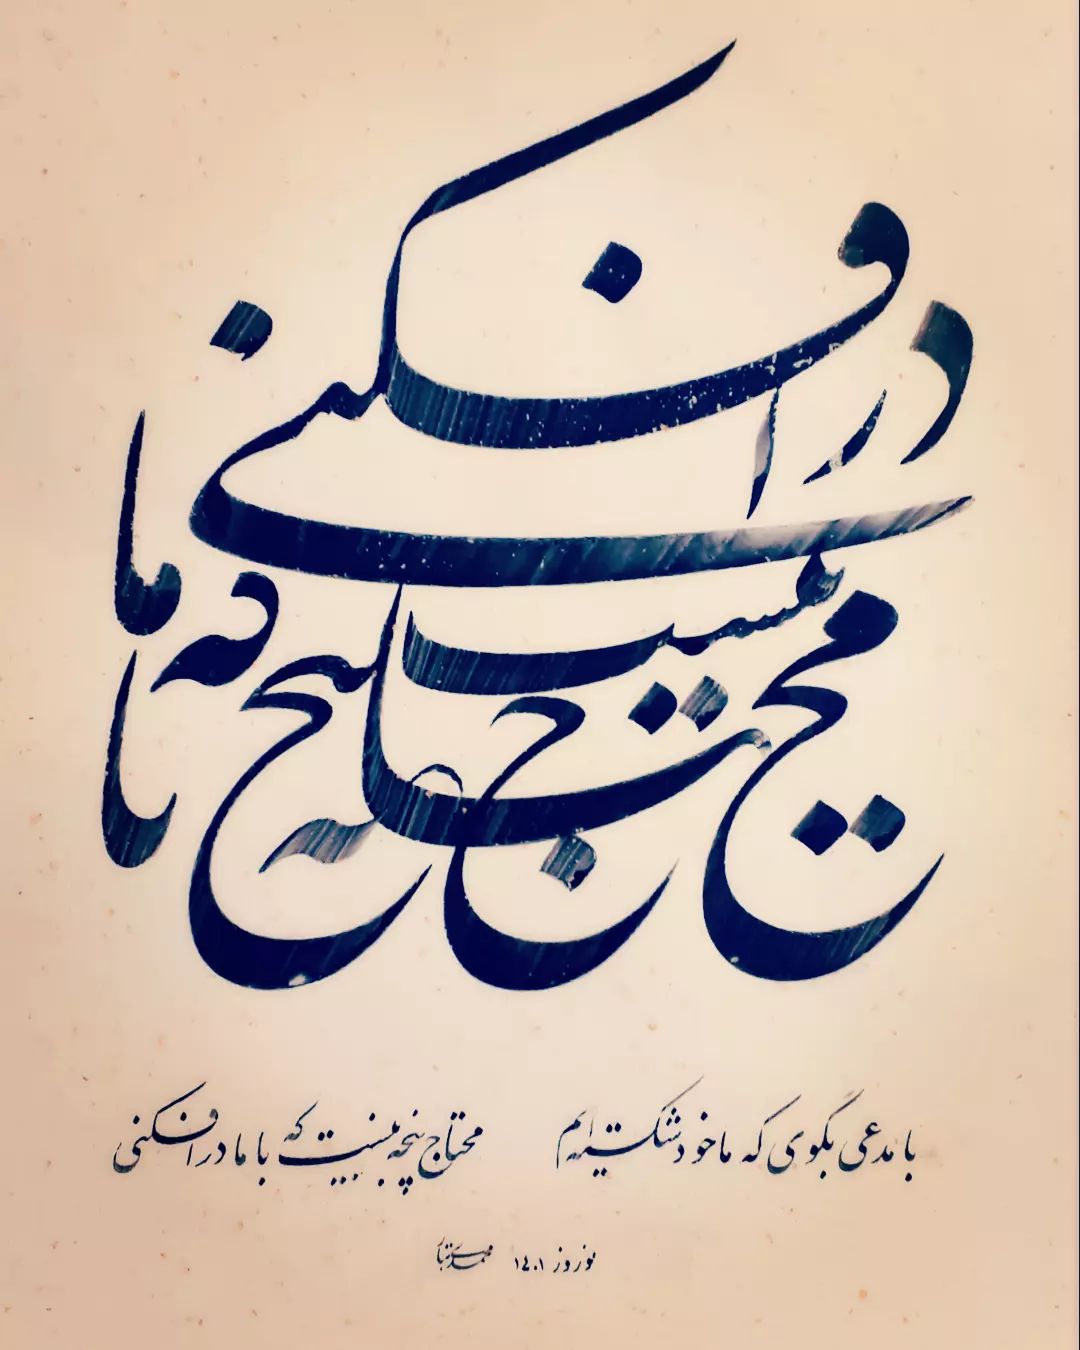 محتاج پنجه نیست که با ما درافکنی
با مدعی بگوی که ما خود شکسته‌ایم محتاج پنجه نیست که با ما درافکنی
نوروز ۱۴۰۱